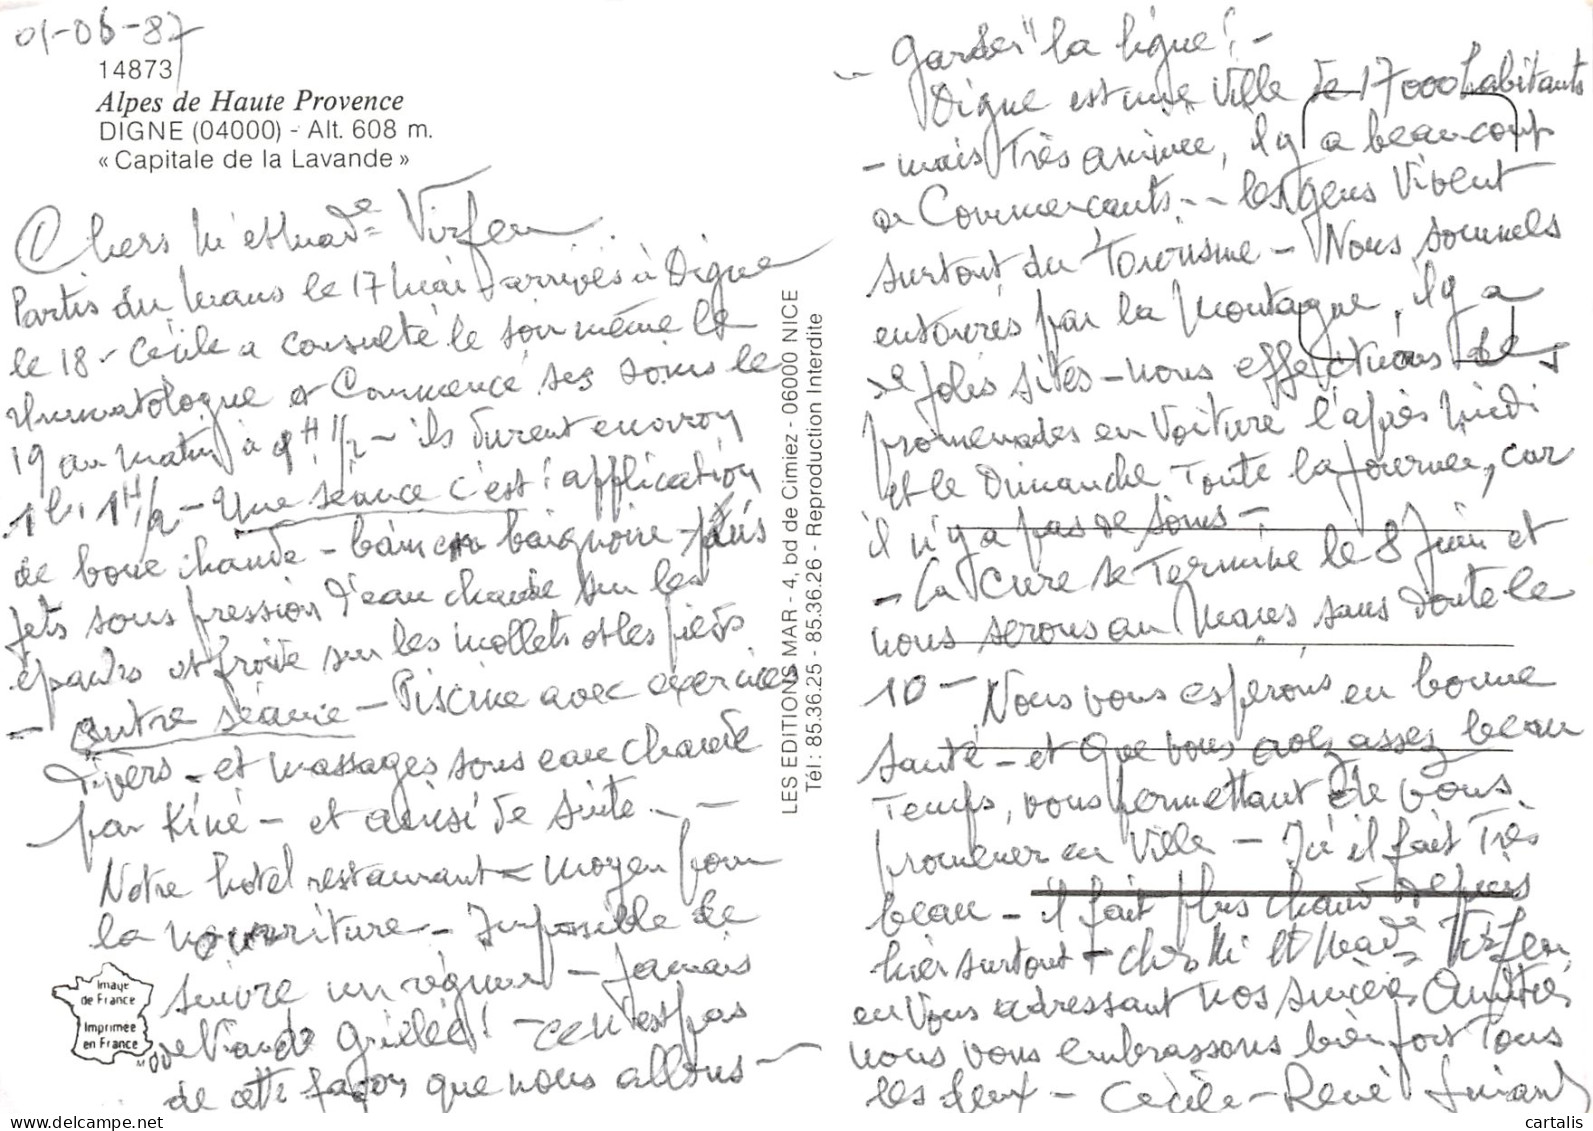 01-06-87
14873
Alpes de Haute Provence
DIGNE (04000) - Alt. 608 m.
« Capitale de la Lavande »
Chers Mr et Mad=e
Partis du Mans le 17 Mai - arrivés à Digne
le 18 - Cécile a consulté le soir même le
rhumatologue et commencé ses soins le
19 au matin à 9H 1/2 - ils durent environ
1h, 1H/2 - Une séance c'est : application
de boue chaude - bain en baignoire - puis
jets sous pression d'eau chaude sur les
épaules et froide sur les mollets et les pieds
- autre séance - Piscine avec exercices
divers - et massages sous eau chaude
par Kiné - et ainsi de suite - -
Notre hotel restaurant - moyen pour
la nourriture - Impossible de
suivre un régime - Jamais
de Viande Grillée ! - ce n'est pas
de cette façon que nous allons -
Image
de France
Imprimée
en France
LES EDITIONS MAR - 4, bd de Cimiez - 06000 NICE
Tél : 85.36.25 - 85.36.26 - Reproduction Interdite
Garder "la ligne" ! -
- Digne est une Ville de 17000 habitants
- mais Très animée, il y a beaucoup
de Commerçants - - les gens Vivent
surtout du Tourisme - Nous sommes
entourés par la Montagne, il y a
de jolis sites - nous effectuons des
promenades en Voiture l'après midi
et le Dimanche Toute la Journée, car
il n'y a pas de soins -
- La Cure se Termine le 8 Juin et
nous serons au Mans sans doute le
10 - Nous vous espérons en bonne
santé - et que vous avez assez beau
Temps, vous permettant de vous
promener en Ville - Ici il fait Très
beau - il fait plus chaud depuis
hier surtout - Chers Mr et Mad=e
en Vous adressant nos sincères Amitiés
nous vous embrassons bien fort Tous
les deux - Cécile - René